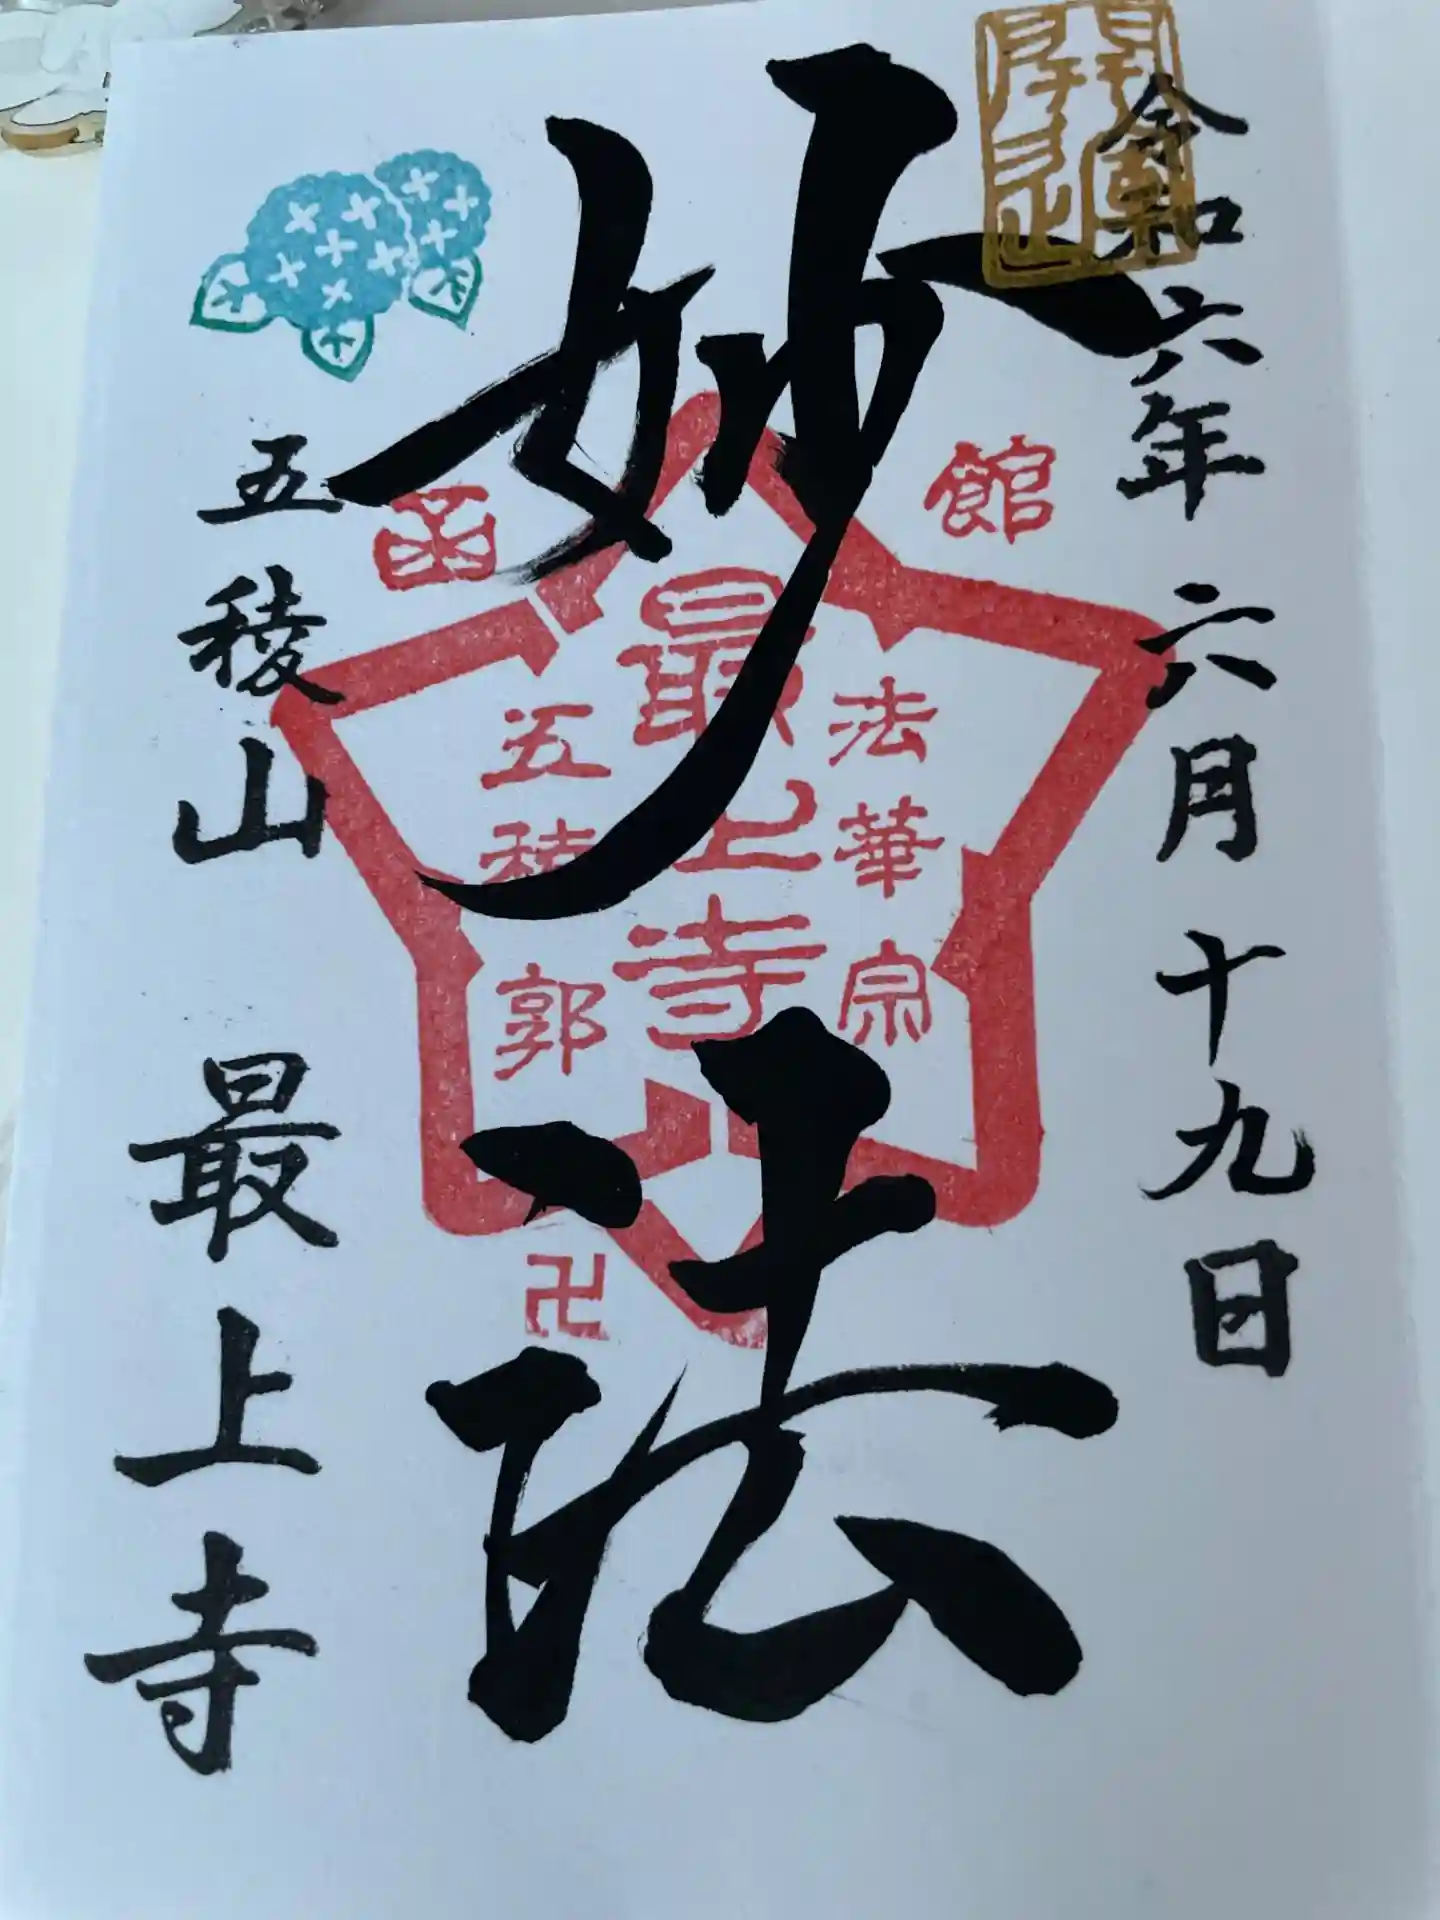 令和六年六月十九日
妙法
五稜山 最上寺
函館
法華宗
最上寺
五稜郭
卍